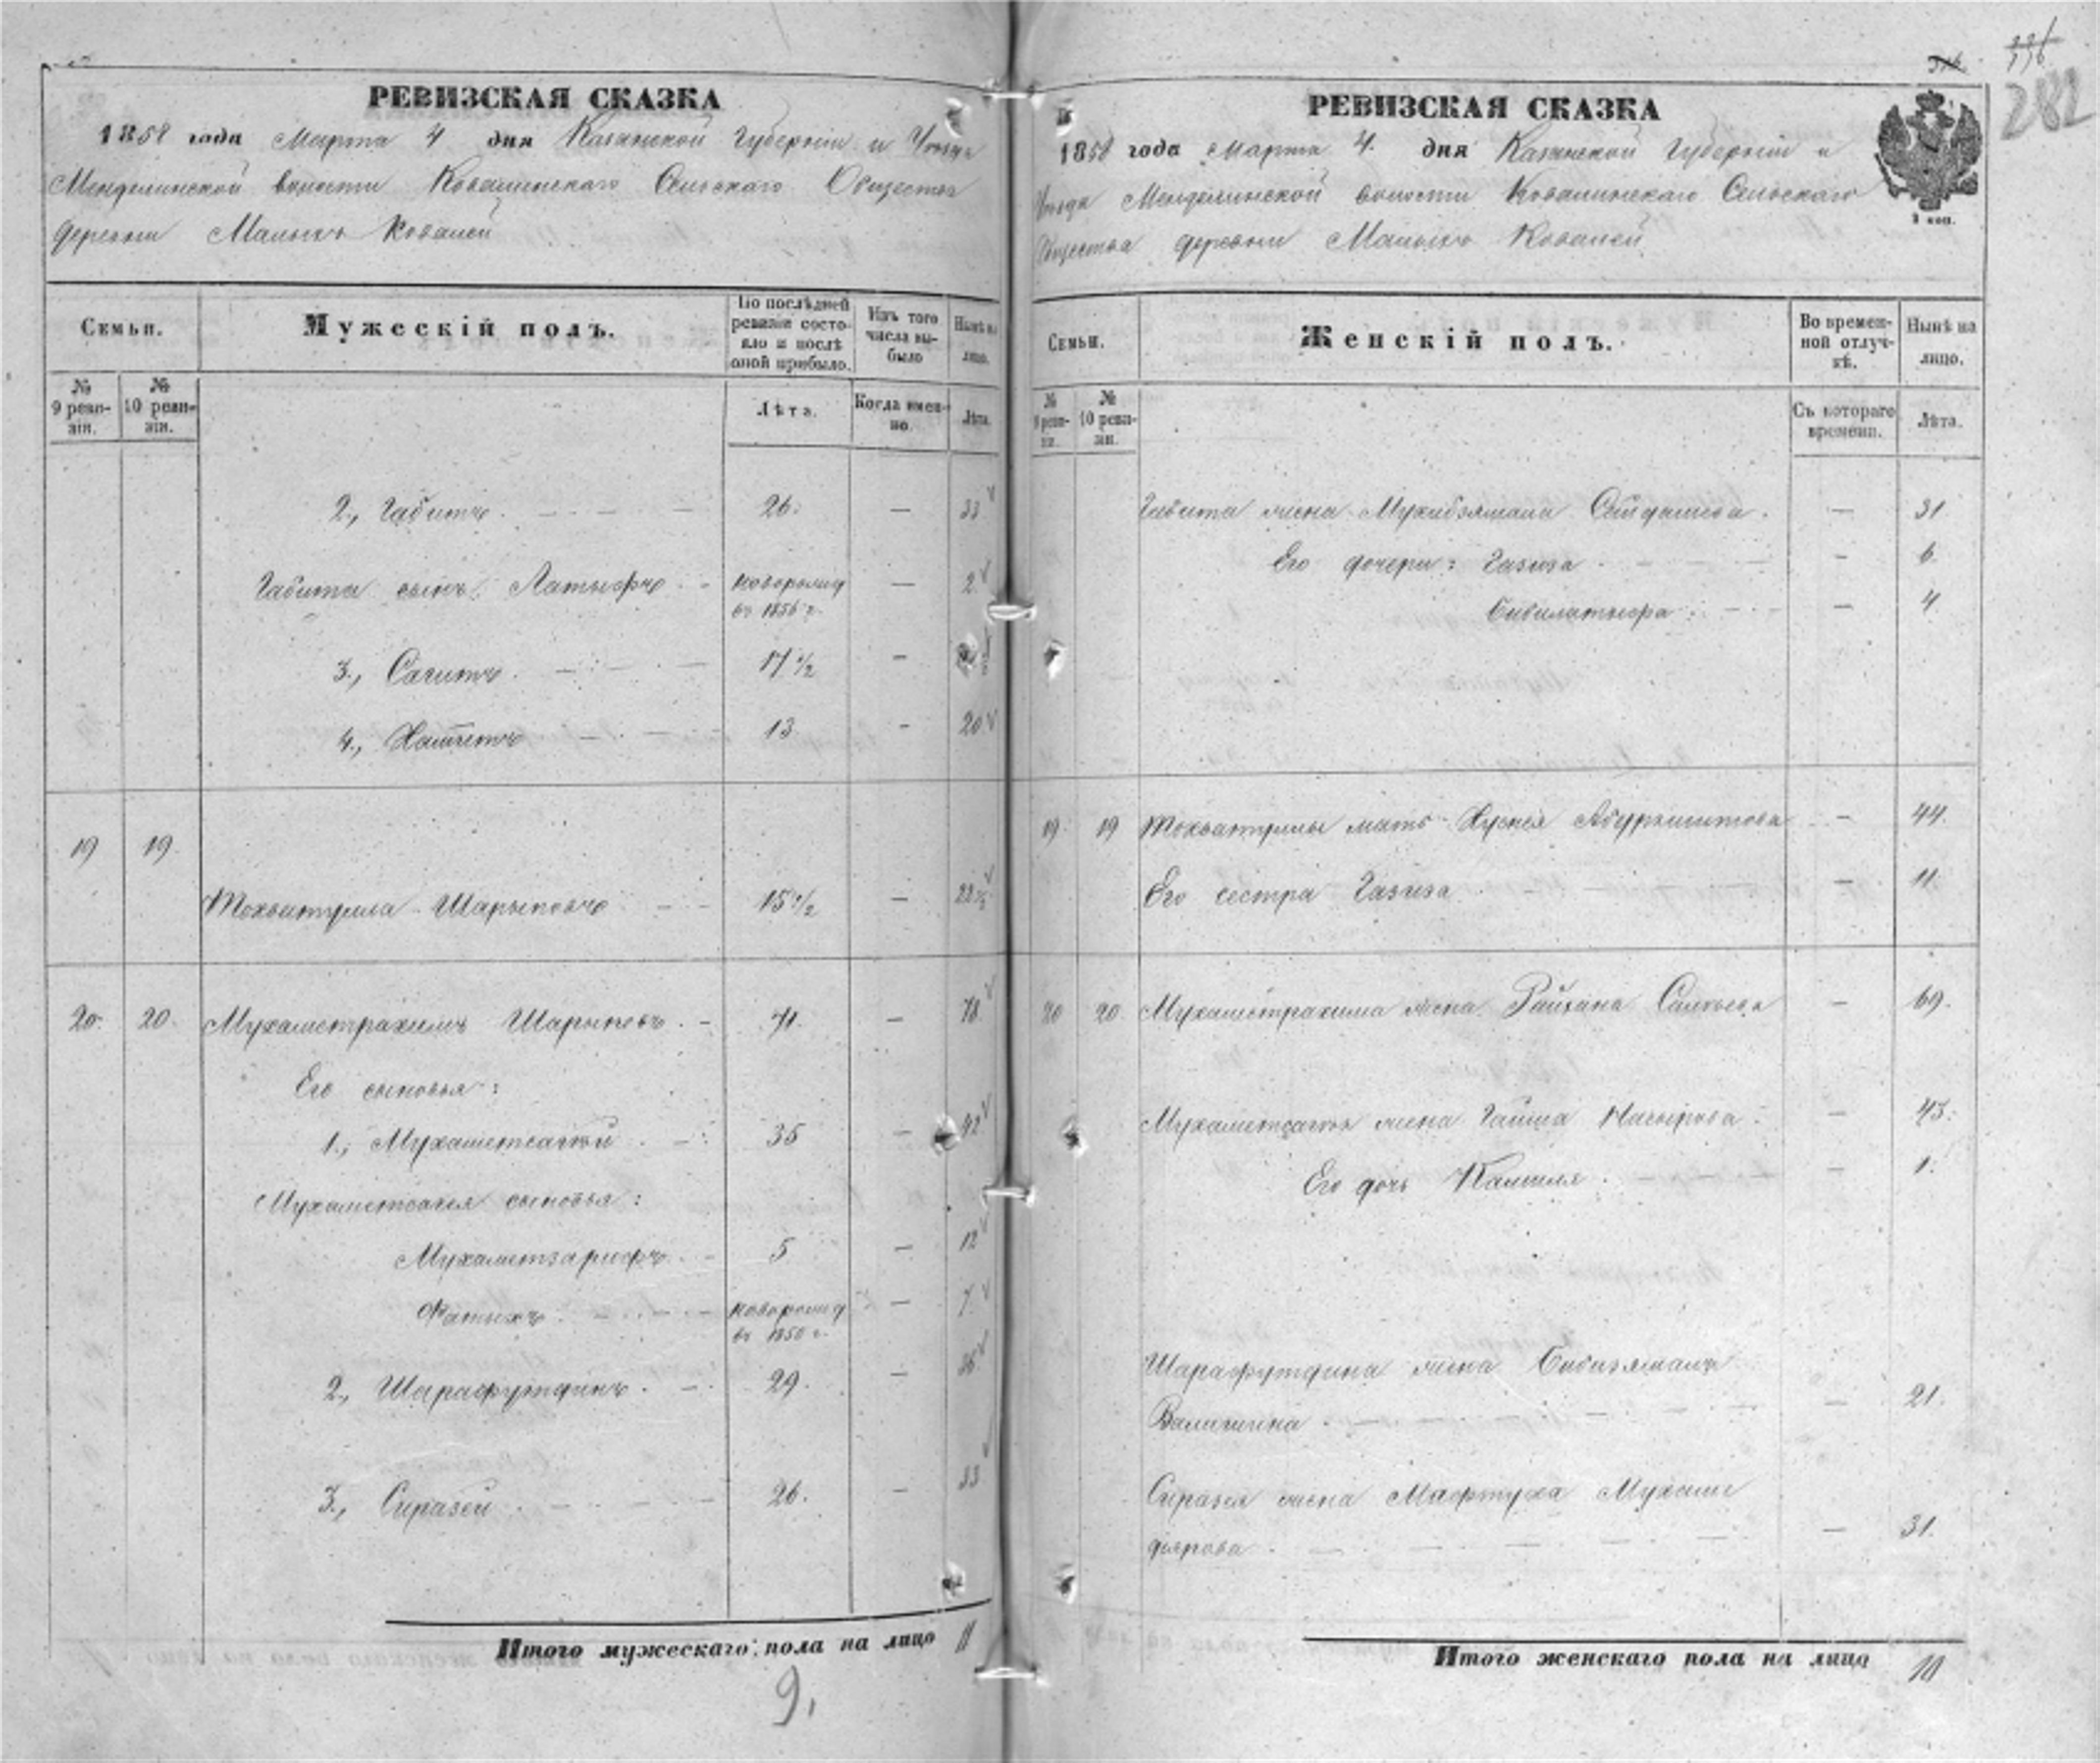 РЕВИЗСКАЯ СКАЗКА
1858 года Марта 4 дня Казанской Губернiи и Уѣзда
Менделинской волости Ковалинскаго Сельскаго Общества
деревни Малыхъ Ковалей
Семьи.
Мужескiй полъ.
По послѣдней ревизiи состояло и послѣ оной прибыло.
Изъ того числа выбыло
Нынѣ на лицо.
№ 9 ревизiи.
№ 10 ревизiи.
Лѣта.
Когда именно.
Лѣта.
2., Габитъ. 26. — 33
Габита сынъ Латыфъ новорожд въ 1856 г. — 2
3., Сагитъ. 17 1/2 —
4., 13 - 20
19 19
Шарыповъ 15 1/2 — 22 1/2
20. 20. Мухаметрахимъ Шарыповъ. 71. — 78
Его сыновья:
1., Мухаметсагѣй 35 — 42
Мухаметсагея сыновья:
Мухаметзарифъ 5 — 12
Фатыхъ новорожд въ 1850 г. — 7
2., Шарафутдинъ. 29. —
3., Сиразей 26. — 33
Итого мужескаго пола на лицо 11
9,
336
282
РЕВИЗСКАЯ СКАЗКА
1858 года Марта 4. дня Казанской Губернiи и
Уѣзда Менделинской волости Ковалинскаго Сельскаго
Общества деревни Малыхъ Ковалей
Семьи.
Женскiй полъ.
Во временной отлучкѣ.
Нынѣ на лицо.
№ 9 ревизiи.
№ 10 ревизiи.
Съ котораго времени.
Лѣта.
Габита жена Сайдашева. — 31.
Его дочери: Газиза — 6.
Бибилатыфа. — 4
19. 19 мать — 44.
Его сестра Газиза — 11
20 20. Мухаметрахима жена Райхана — 69.
Мухаметсагѣя жена Гайша — 43.
Его дочь Камиля. — 1.
Шарафутдина жена
Валишина. — 21.
Сиразея жена Мафтуха Мухаме
дьярова. — 31.
Итого женскаго пола на лицо 10